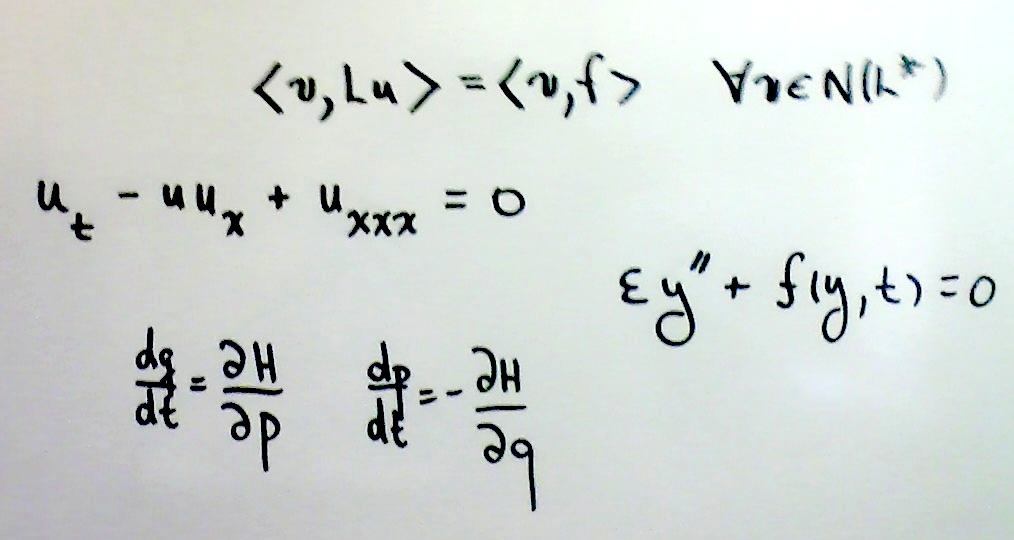 <v, Lu> = <v, f> ∀v∈N(L*)
u_t - uu_x + u_xxx = 0
εy″ + f(y, t) = 0
dq/dt = ∂H/∂p dp/dt = -∂H/∂q